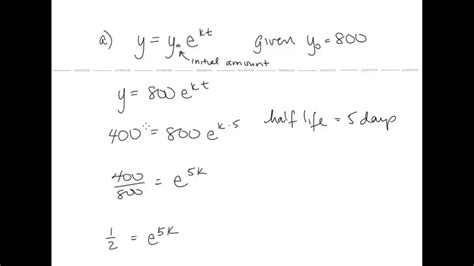 a) y = y₀ e^{kt} given y₀ = 800
initial amount
y = 800 e^{kt}
400 = 800 e^{k·5} half life = 5 days
400/800 = e^{5k}
1/2 = e^{5k}